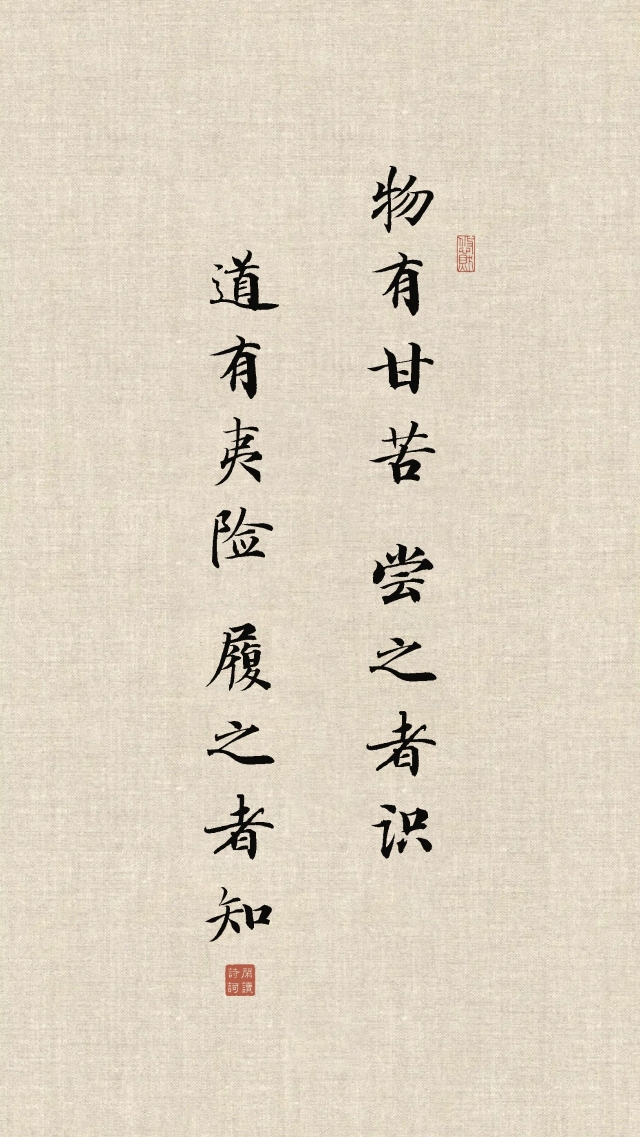 物有甘苦 尝之者识
道有夷险 履之者知
閑讀
詩詞